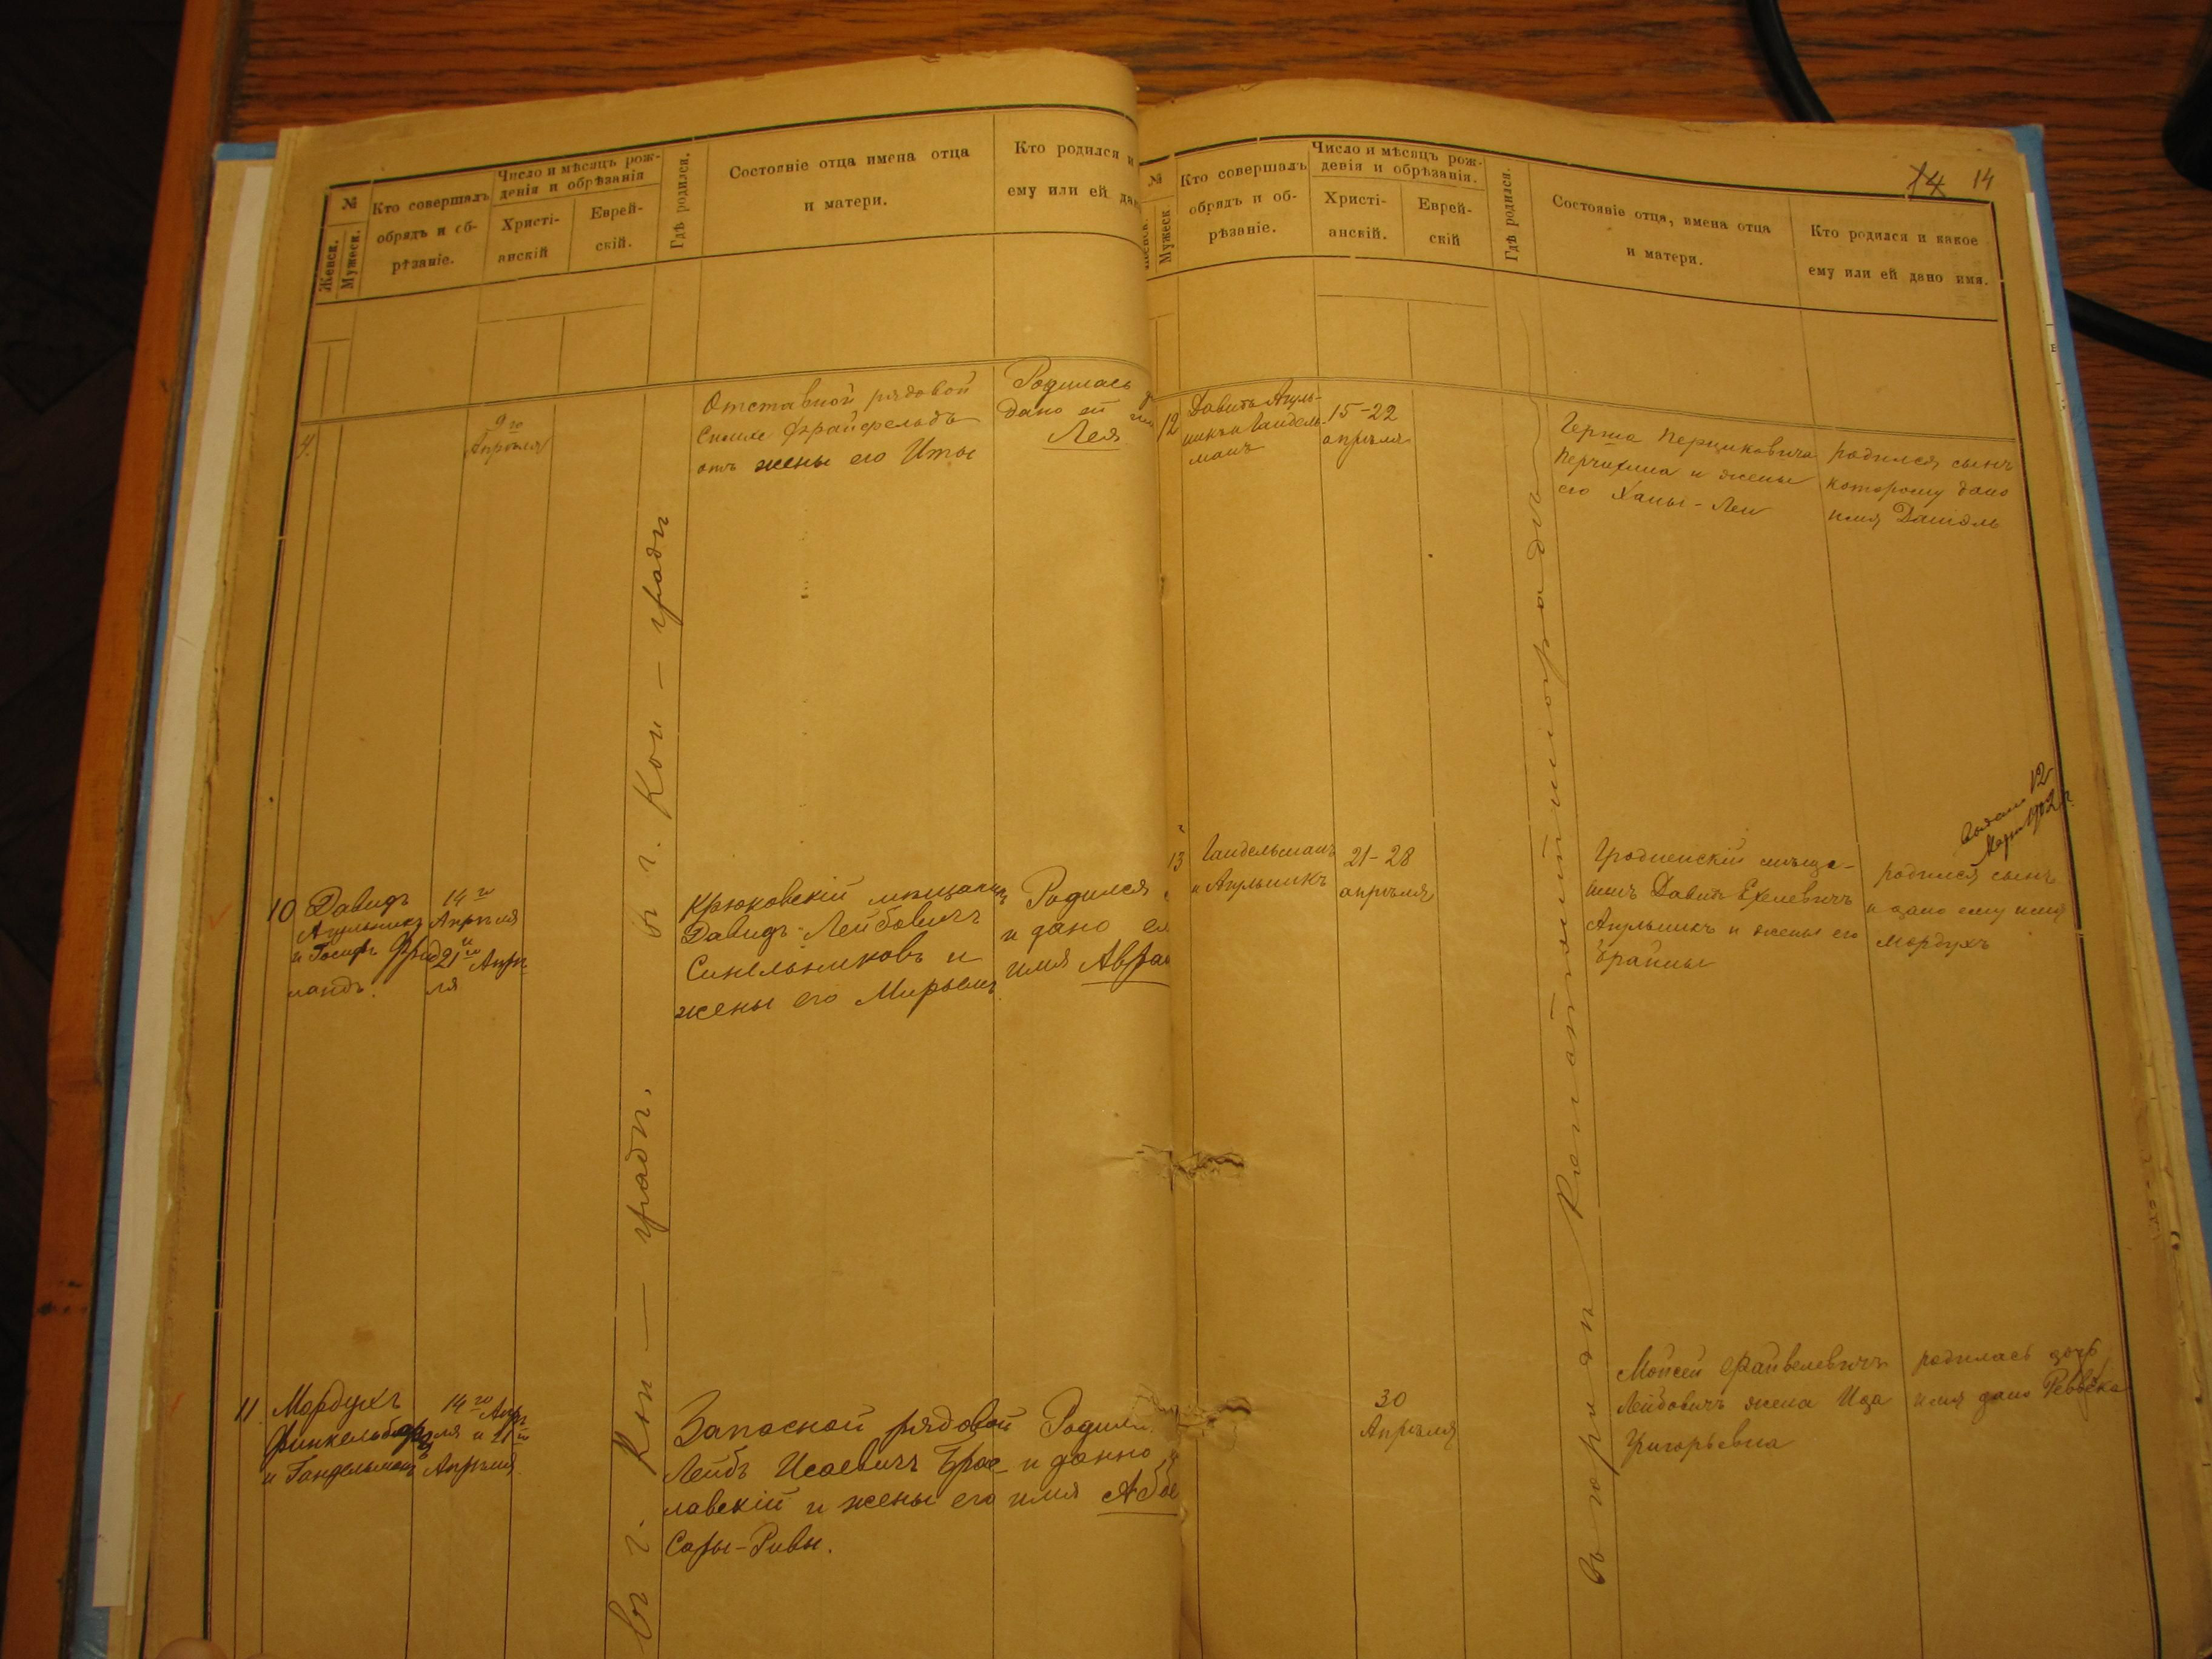 №
Женск.
Мужеск.
Кто совершалъ
обрядъ и об-
рѣзаніе.
Число и мѣсяцъ рож-
денія и обрѣзанія
Христі-
анскій
Еврей-
скій.
Гдѣ родился.
Состояніе отца имена отца
и матери.
Кто родился и
ему или ей дан
9го
Апрѣля
Отставной рядовой
Симхе Фрайфельдъ
отъ жены его Иты
Родилась
дано ей
Лея
въ г. Кон — градѣ
10
Давидъ
Агульникъ
и Іосифъ Фрид
ландъ.
14го
Апрѣля
и
21го Апрѣ
ля
Крюковскій мѣщанинъ
Давидъ-Лейбовичъ
Синельниковъ и
жены его Мирьямъ
Родился
и дано ем
имя Авра
11
Мордухъ
Финкельбергъ
и Гандельманъ
14го Апрѣ
ля и 21го
Апрѣля
Запасной рядовой
Лейбъ Исаевичъ Брас-
лавскій и жены его
Сары-Ривы.
Родил
и данно
имя Аббе
въ г. Кон — градѣ.
14 14
№
Мужеск
Кто совершалъ
обрядъ и об-
рѣзаніе.
Число и мѣсяцъ рож-
денія и обрѣзанія.
Христі-
анскій.
Еврей-
скій
Гдѣ родился.
Состояніе отца, имена отца
и матери.
Кто родился и какое
ему или ей дано имя.
12
Давидъ Агуль-
никъ и Гандель-
манъ
15-22
апрѣля
Герша Перчиковича
Перчихина и жены
его Ханы-Леи
родился сынъ
которому дано
имя Даніэль
13
Гандельманъ
и Агульникъ
21-28
апрѣля
Гродненскій мѣща-
нинъ Давидъ Ехелевичъ
Агульникъ и жены его
Брайны
12
Марта 1902 г.
родился сынъ
и дано ему имя
Мордухъ
30
Апрѣля
Моисей Файвелевичъ
Лейбовичъ жена Ида
Григорьевна
родилась дочь
имя дано Реввека
въ городѣ Константиноградѣ